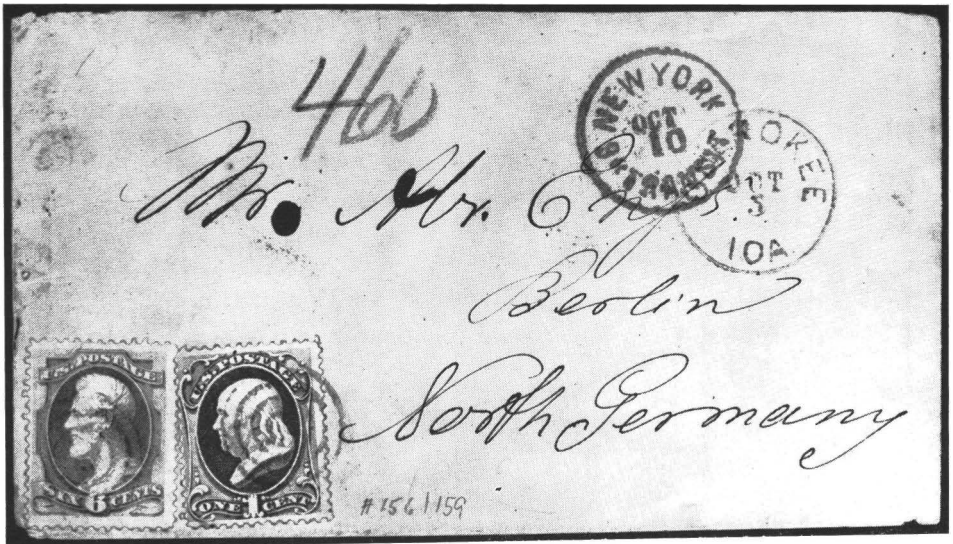 NEW YORK
OCT
10
TRANSIT
OKEE
OCT
5
IOA
Mr. Abr.
Berlin
North Germany
U.S. POSTAGE
SIX 6 CENTS
U.S. POSTAGE
ONE 1 CENT
#156/159